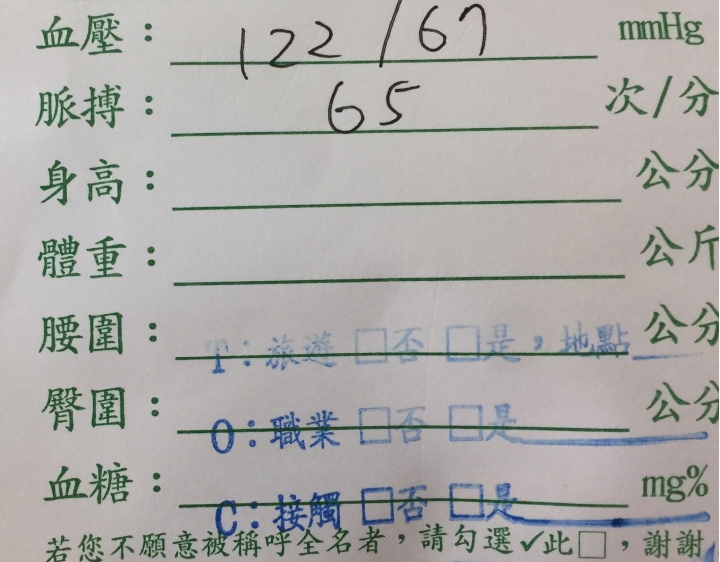 血壓： 122/67 mmHg
脈搏： 65 次/分
身高： 公分
體重： 公斤
腰圍： 公分
T：旅遊 □否 □是，地點
臀圍： 公分
O：職業 □否 □是
血糖： mg%
C：接觸 □否 □是
若您不願意被稱呼全名者，請勾選✓此□，謝謝